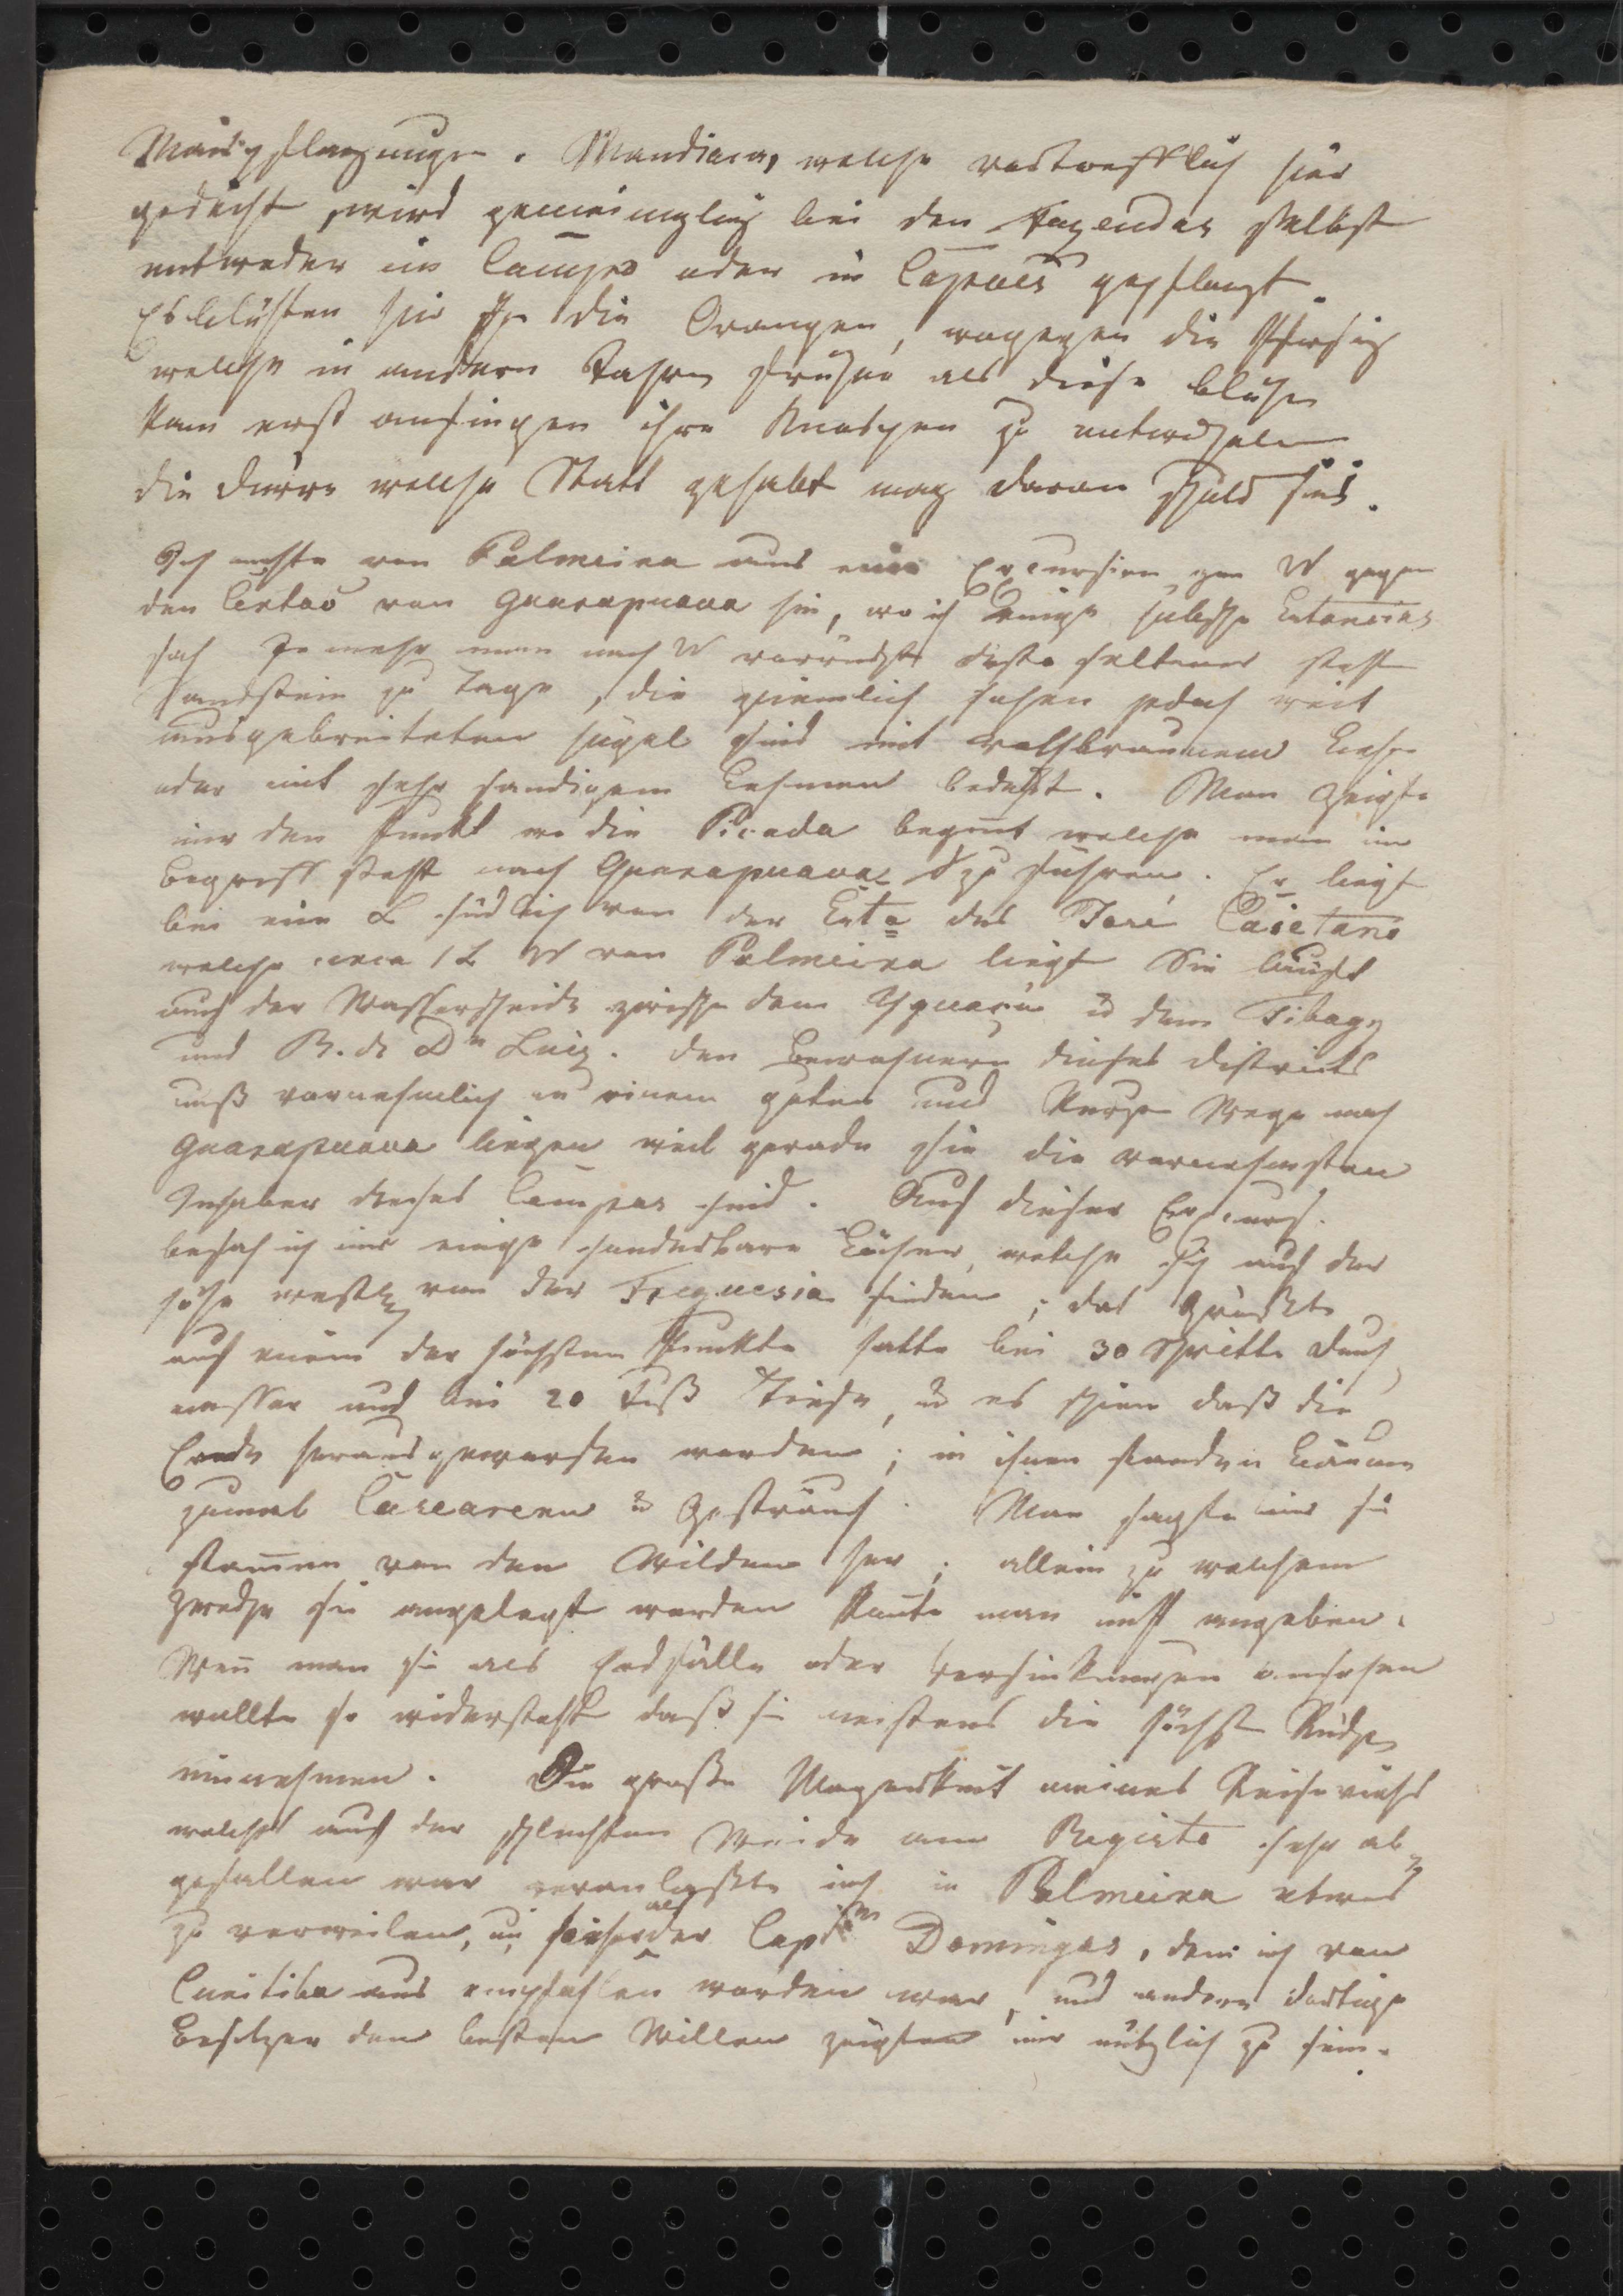 Maispflanzungen. Mandioca, welche vortrefflich hier
gedeiht, wird gemeiniglich bei den Fazendas selbst
entweder im Campo oder in Capoes gepflanzt.
Es blühten hier die Orangen, wogegen die Pfirsich
welche in andern Jahren früher als diese blühen
kaum erst anfingen ihre Knospen zu entwickeln
die Dürre welche Statt gehabt mag daran schuld sein.
Ich machte von Palmeira aus eine Excursion gen W gegen
den Certaõ von Guarapuava hin, wo ich einige hübsche Estancias
sah Je mehr man nach W vorrückt desto seltener steht
Sandstein zu Tage, die ziemlich hohen jedoch weit
ausgebreiteten Hügel sind mit rothbraunem Lehm
oder mit sehr sandigem Lehmen bedeckt. Man zeigte
mir den Punkt wo die Picada beginnt welche man im
Begriff steht nach Guarapuava zu führen. Er liegt
bei eine L südlich von der Esta des José Caietano
welche circa 1 L W von Palmeira liegt Sie läuft
auf der Wasserscheide zwischen dem Yguaçu u dem Tibagy
und R. de Dn Luiz. Den Bewohnern dieses Districts
muß vornehmlich an einem guten und kurzen Wege nach
Guarapuava liegen weil gerade sie die vornehmsten
Inhaber dieses Campos sind. Auf dieser Excurs.
besah ich mir einige sonderbare Löcher, welche sich auf der
Höhe westl von der Freguesia finden; das größte
auf einem der höchsten Punkte hatte bei 30 Schritte Durch
messer und bei 20 Fuß Tiefe, u es schien daß die
Erde herausgeworfen worden; in ihnen standen Bäume
zumal Casearien u Gesträuch. Man sagte mir sie
stammen von den Wilden her; allein zu welchem
Zwecke sie angelegt worden konnte man nicht angeben.
Wenn man sie als Erdfälle oder Versinkungen ansehen
wollte so widersteht daß sie meistens die höchsten Rücken
einnehmen. Die große Magerkeit meines Reiseviehs
welches auf der schlechten Weide am Registo sehr ab
gefallen war veranlaßte mich in Palmeira etwas
zu verweilen, als der Captm Domingos, dem ich von
Curitiba aus empfohlen worden war, und andere dortige
Besitzer den besten Willen zeigten mir nützlich zu sein.